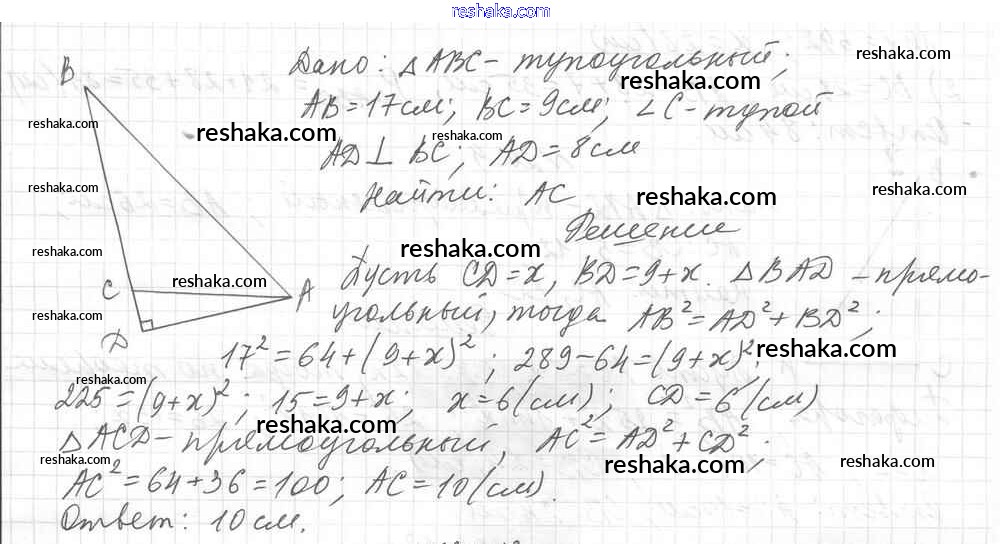 reshaka.com
B
Дано: △ABC - тупоугольный;
AB = 17 см; BC = 9 см; ∠C - тупой
AD ⊥ BC; AD = 8 см
Найти: AC
Решение
Пусть CD = x, BD = 9 + x. △BAD - прямо-
угольный, тогда AB² = AD² + BD²;
C
A
D
17² = 64 + (9 + x)²; 289 - 64 = (9 + x)²;
225 = (9 + x)²; 15 = 9 + x; x = 6 (см); CD = 6 (см)
△ACD - прямоугольный, AC² = AD² + CD²;
AC² = 64 + 36 = 100; AC = 10 (см).
Ответ: 10 см.
reshaka.com
reshaka.com
reshaka.com
reshaka.com
reshaka.com
reshaka.com
reshaka.com
reshaka.com
reshaka.com
reshaka.com
reshaka.com
reshaka.com
reshaka.com
reshaka.com
reshaka.com
reshaka.com
reshaka.com
reshaka.com